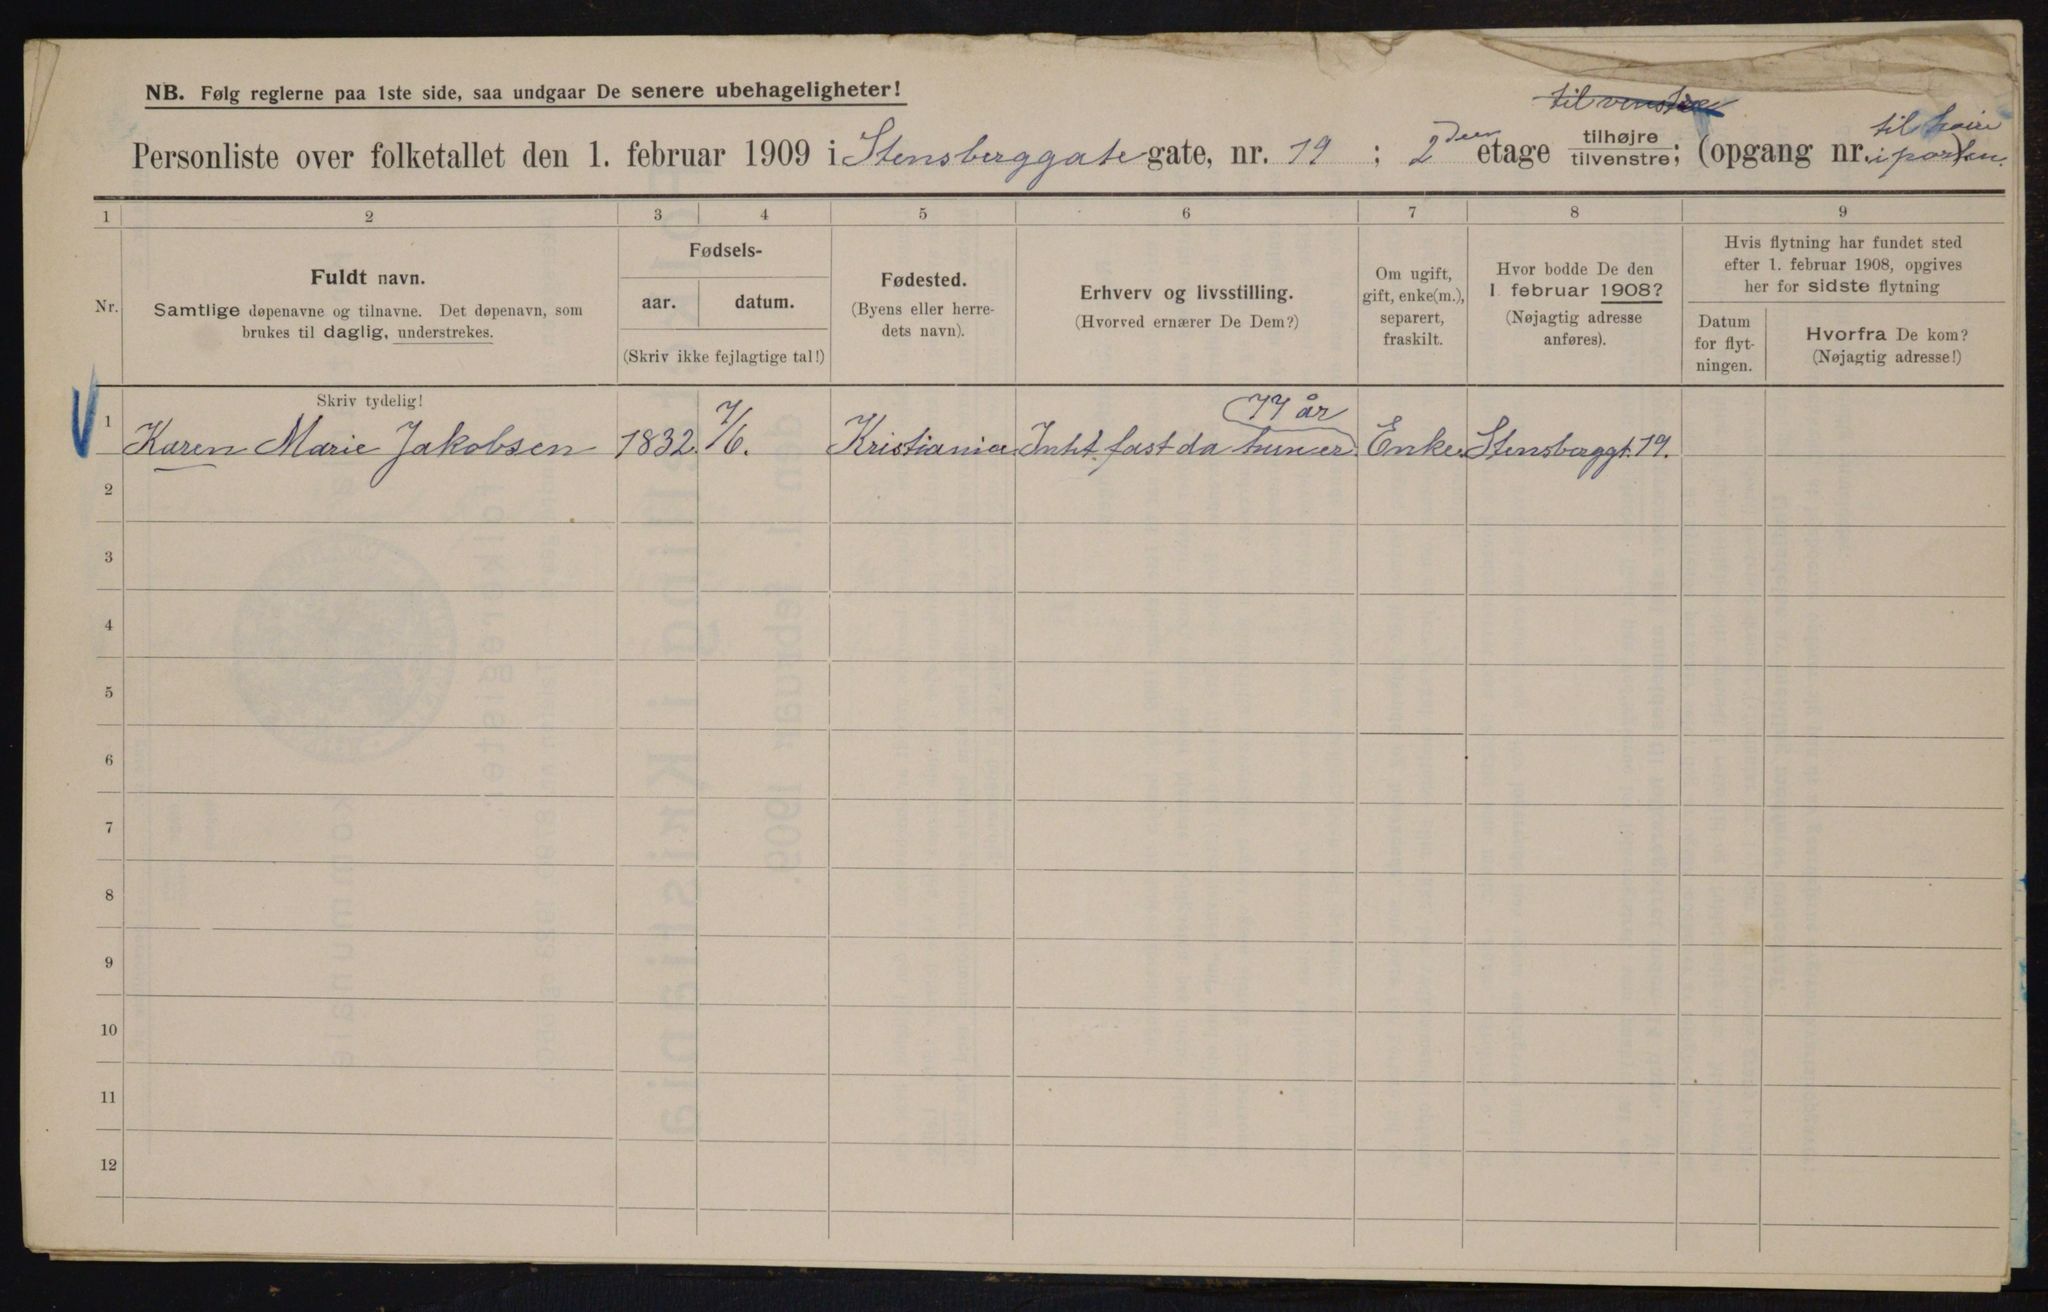 NB. Følg reglerne paa 1ste side, saa undgaar De senere ubehageligheter!
til venstre
Personliste over folketallet den 1. februar 1909 i Stensberggate gate, nr. 19 ; 2den etage tilhøjre tilvenstre; (opgang nr. til høire i porten.
1 2 3 4 5 6 7 8 9
Nr.
Fuldt navn.
Samtlige døpenavne og tilnavne. Det døpenavn, som
brukes til daglig, understrekes.
Fødsels-
aar. datum.
(Skriv ikke fejlagtige tal!)
Fødested.
(Byens eller herre-
dets navn).
Erhverv og livsstilling.
(Hvorved ernærer De Dem?)
Om ugift,
gift, enke(m.),
separert,
fraskilt.
Hvor bodde De den
1. februar 1908?
(Nøjagtig adresse
anføres).
Hvis flytning har fundet sted
efter 1. februar 1908, opgives
her for sidste flytning
Datum
for flyt-
ningen.
Hvorfra De kom?
(Nøjagtig adresse!)
Skriv tydelig!
77 år
1 Karen Marie Jakobsen 1832 7/6. Kristiania Intet fast da hun er Enke Stensberggt. 19.
2
3
4
5
6
7
8
9
10
11
12